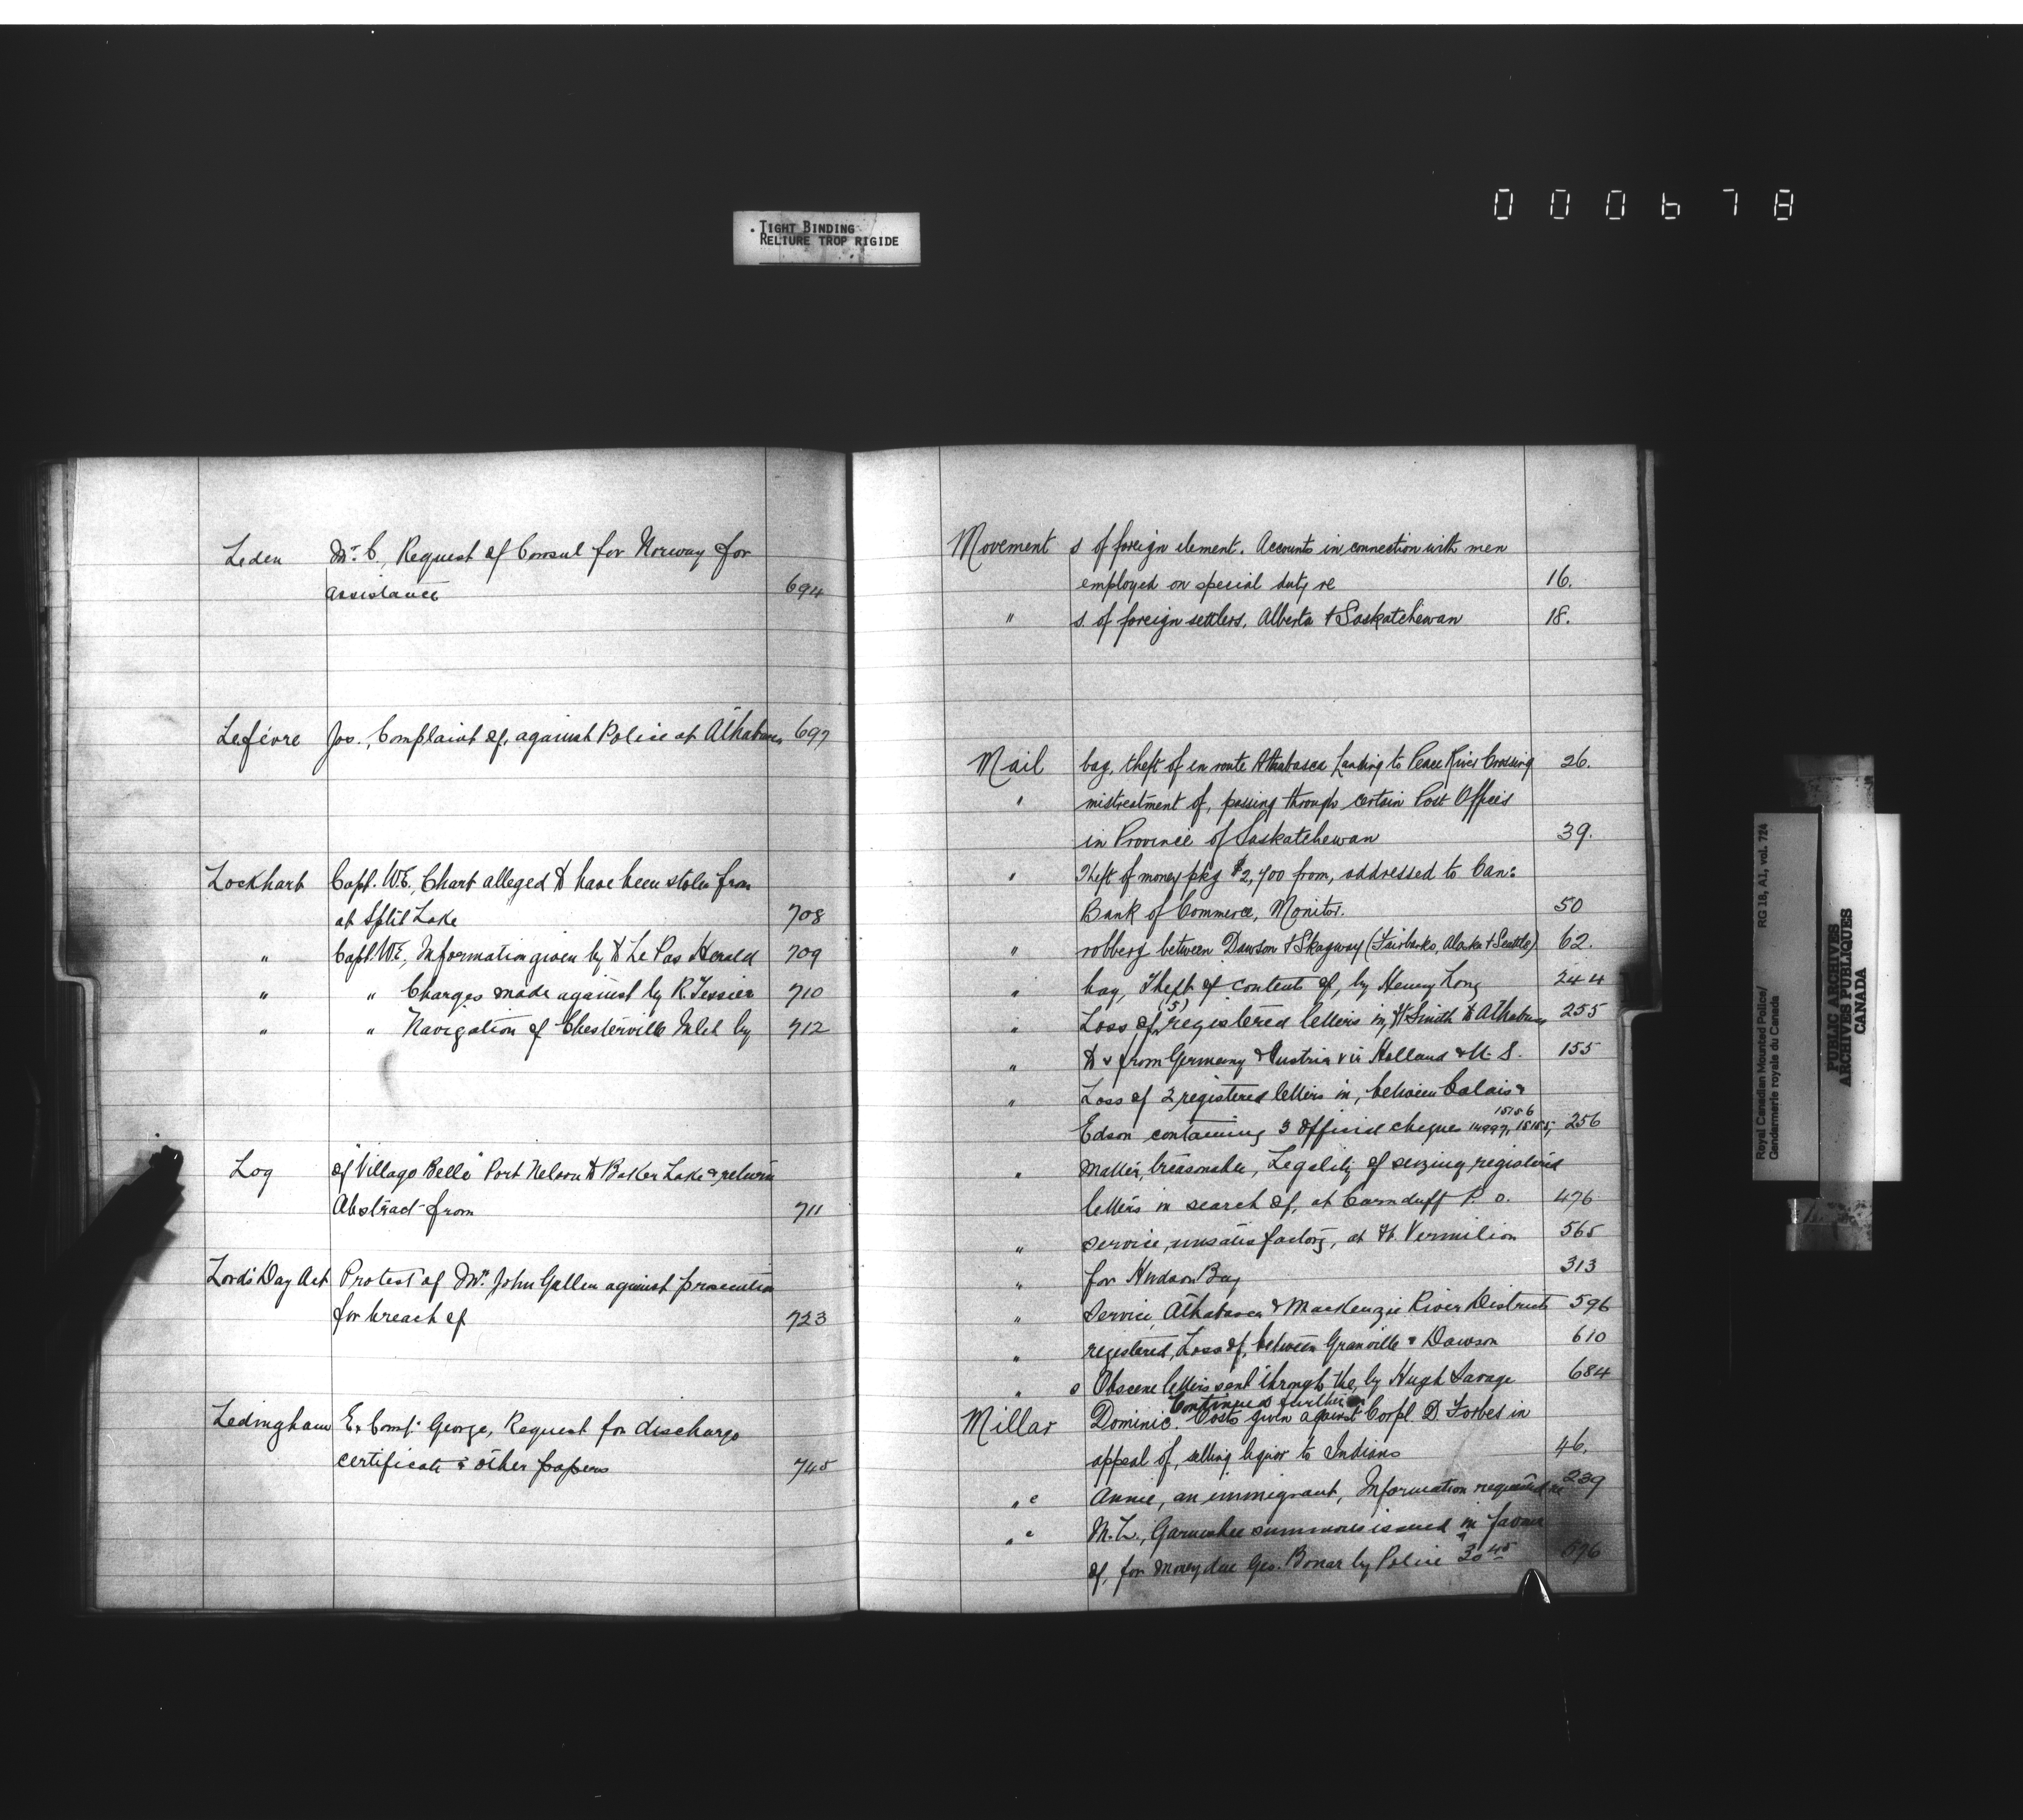 000678
TIGHT BINDING
RELIURE TROP RIGIDE
Leden Mr. C., Request of Consul for Norway for
assistance 694
Lefévre Jos., Complaint of, against Police at Athabasca 697
Lockhart Capt. W.E., Chart alleged to have been stolen from
at Split Lake 708
" Capt. W.E., Information given by to Le Pas Herald 709
" " Charges made against by R. Tessier 710
" " Navigation of Chesterville Inlet by 712
Log of "Village Belle" Port Nelson to Baker Lake & return
Abstract from 711
Lord's Day Act Protest of Mr. John Gallen against prosecution
for breach of 723
Ledingham Ex Const. George, Request for discharge
certificate & other papers 745
Movement s of foreign element. Accounts in connection with men
employed on special duty re 16.
" s. of foreign settlers, Alberta & Saskatchewan 18.
Mail bag, theft of en route Athabasca Landing to Peace River Crossing 26.
" mistreatment of, passing through certain Post Offices
in Province of Saskatchewan 39.
" Theft of money pkg $2,700 from, addressed to Can:
Bank of Commerce, Monitor. 50
" robbery between Dawson & Skagway (Fairbanks, Alaska & Seattle) 62.
" bag, Theft of contents of, by Henry Long 244
" Loss of (5) registered letters in, Ft Smith to Athabasca 255
" to & from Germany & Austria via Holland & U.S. 155
" Loss of 2 registered letters in, between Calais &
Edson containing 3 official cheques 14997, 15155, 15156 256
" matter, treasonable, Legality of seizing registered
letters in search of, at Carnduff P.O. 476
" service, unsatisfactory, at Ft. Vermilion 565
" for Hudson Bay 313
" Service, Athabasca & MacKenzie River Districts 596
" registered, Loss of, between Granville & Dawson 610
" s Obscene letters sent through the, by Hugh Savage 684
Continued further on
Millar Dominic Costs given against Corpl D. Forbes in
appeal of, selling liquor to Indians 46.
" e Annie, an immigrant, Information required re 239
" e M.L., Garnishee summons issued in favour
of, for money due Geo. Bonar by Police 30 45 676
Royal Canadian Mounted Police/ RG 18, A1, vol. 724
Gendarmerie royale du Canada
PUBLIC ARCHIVES
ARCHIVES PUBLIQUES
CANADA